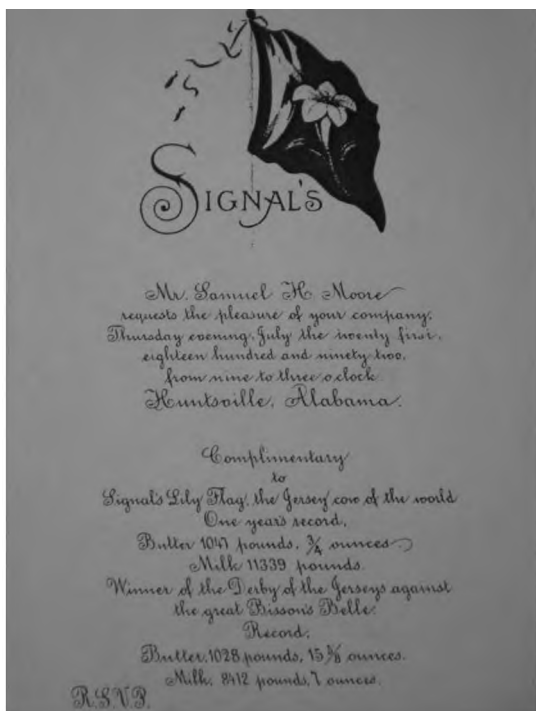 SIGNAL'S
Mr. Samuel H. Moore
requests the pleasure of your company,
Thursday evening, July the twenty first,
eighteen hundred and ninety two,
from nine to three o'clock
Huntsville, Alabama.
Complimentary
to
Signal's Lily Flag, the Jersey cow of the world
One year's record,
Butter 1047 pounds, ¾ ounces
Milk 11339 pounds.
Winner of the Derby of the Jerseys against
the great Bisson's Belle.
Record,
Butter, 1028 pounds, 15 ⅗ ounces.
Milk, 8412 pounds, 7 ounces.
R.S.V.P.